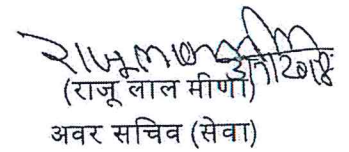 (राजू लाल मीणा)
अवर सचिव (सेवा)